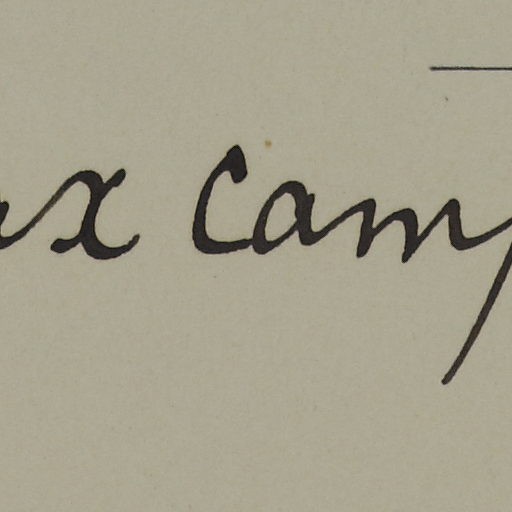 ux Camp